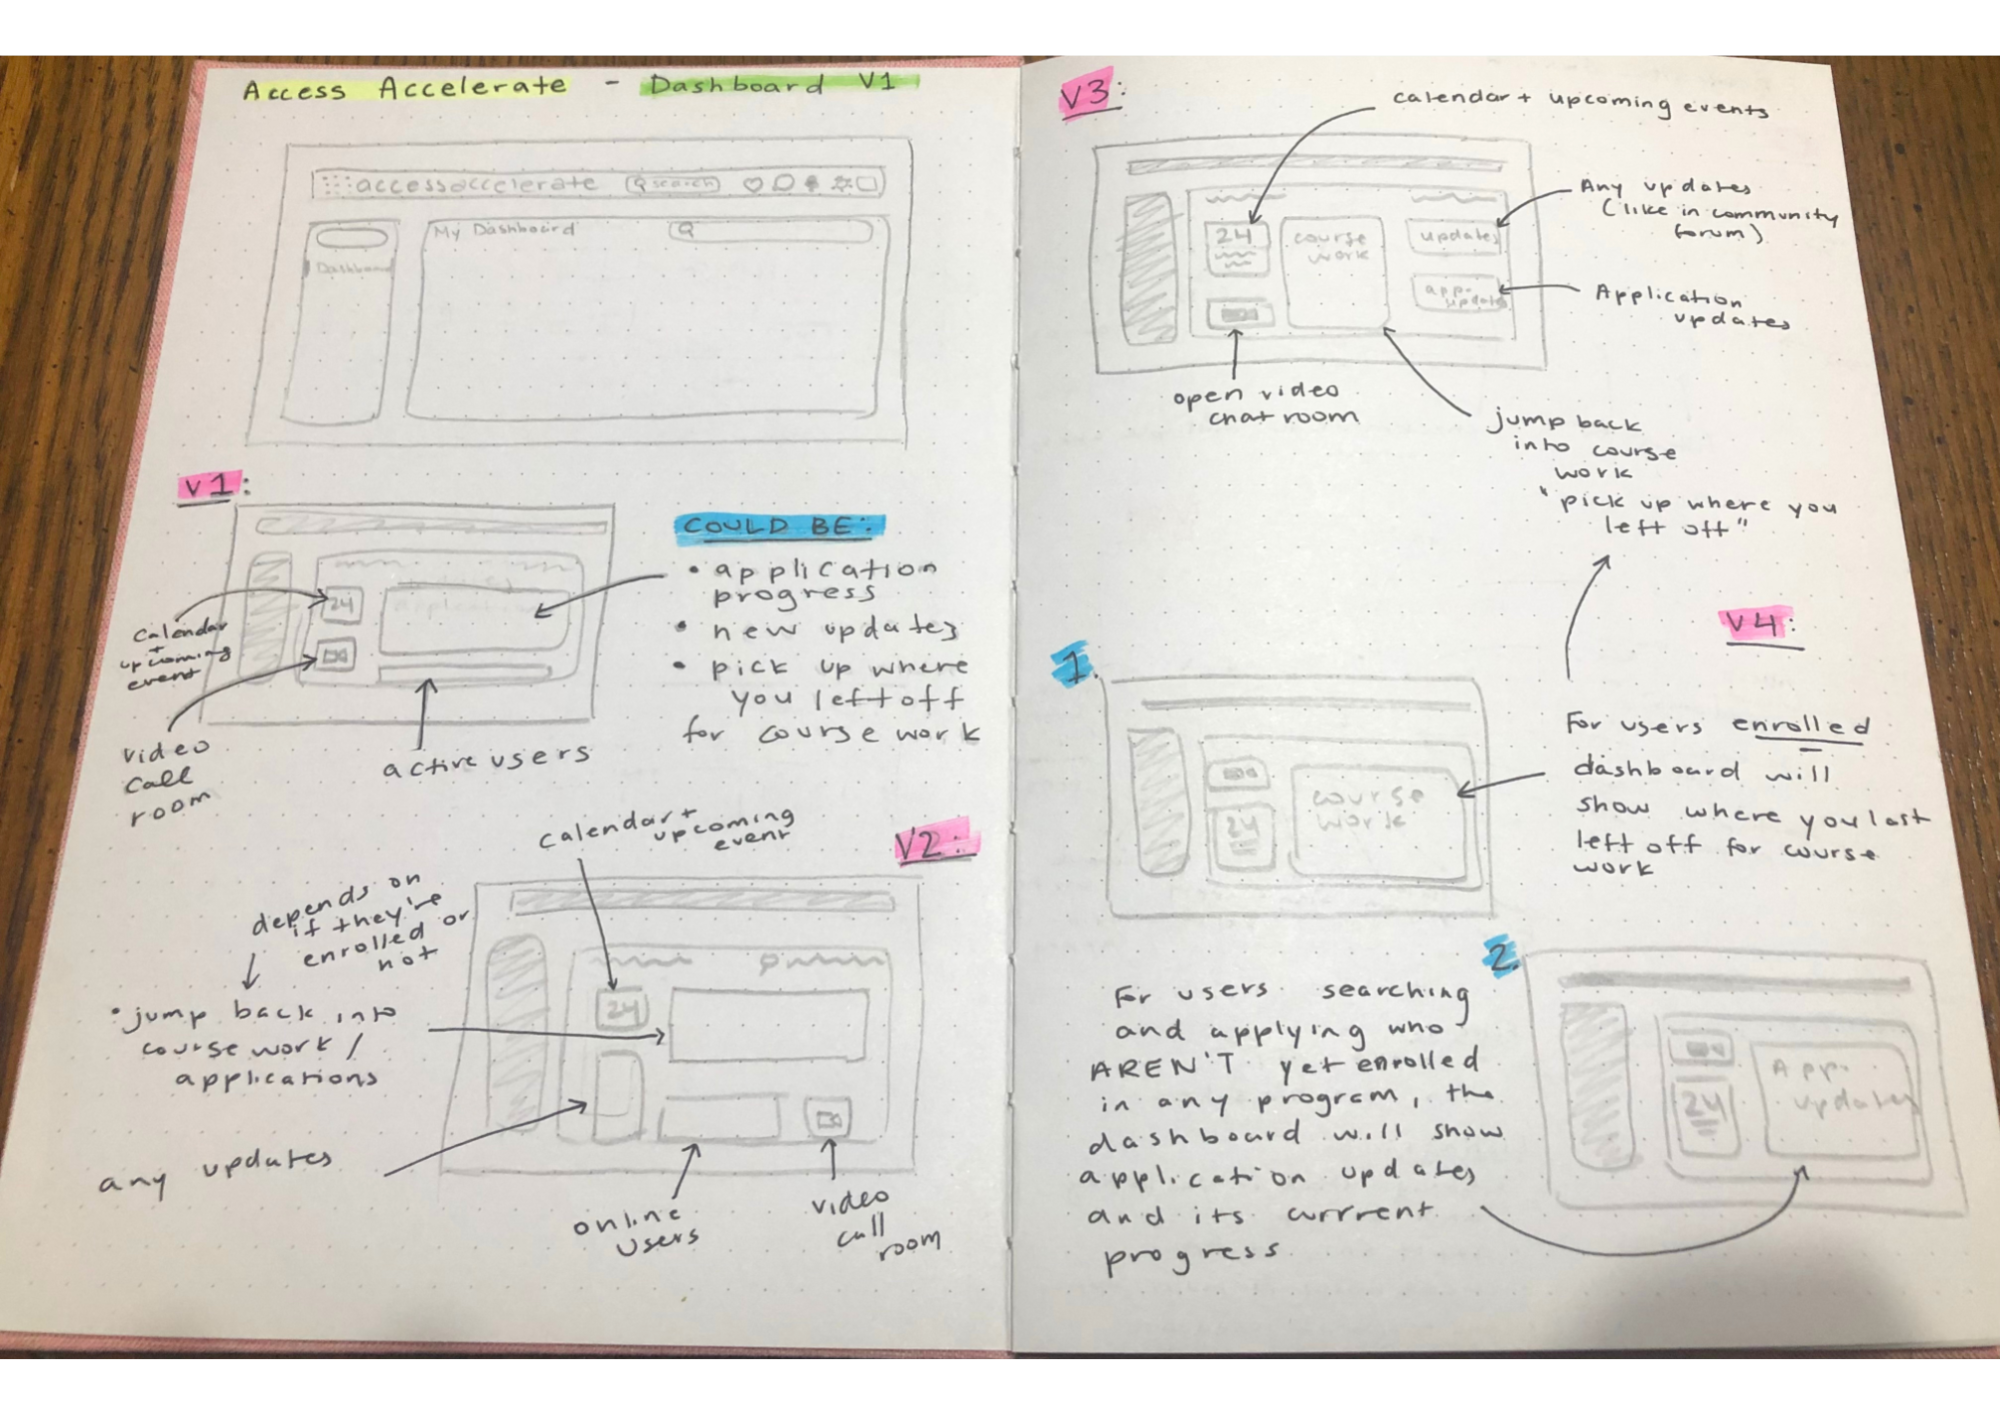 Access Accelerate - Dashboard V1
accessaccelerate
search
My Dashboard
Dashboard
V1:
24
calendar
+
upcoming
event
video
call
room
active users
COULD BE:
• application
progress
• new updates
• pick up where
you left off
for course work
V2:
calendar +
upcoming
event
depends on
if they're
enrolled or
not
• jump back into
course work /
applications
24
any updates
online
users
video
call
room
V3:
calendar + upcoming events
24
course
work
updates
app.
updates
Any updates
(like in community
forum)
Application
updates
open video
chat room
jump back
into course
work
"pick up where you
left off"
V4:
1.
course
work
24
For users enrolled
dashboard will
show where you last
left off for course
work
2.
App.
updates
24
For users searching
and applying who
AREN'T yet enrolled
in any program, the
dashboard will show
application updates
and its current
progress